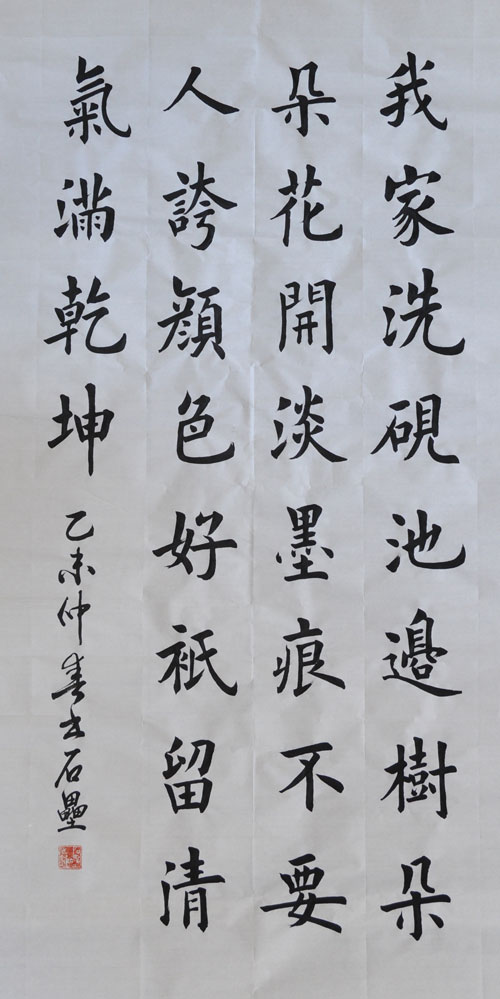 我家洗硯池邊樹朵
朵花開淡墨痕不要
人誇顏色好祇留清
氣滿乾坤
乙未仲春書石壘